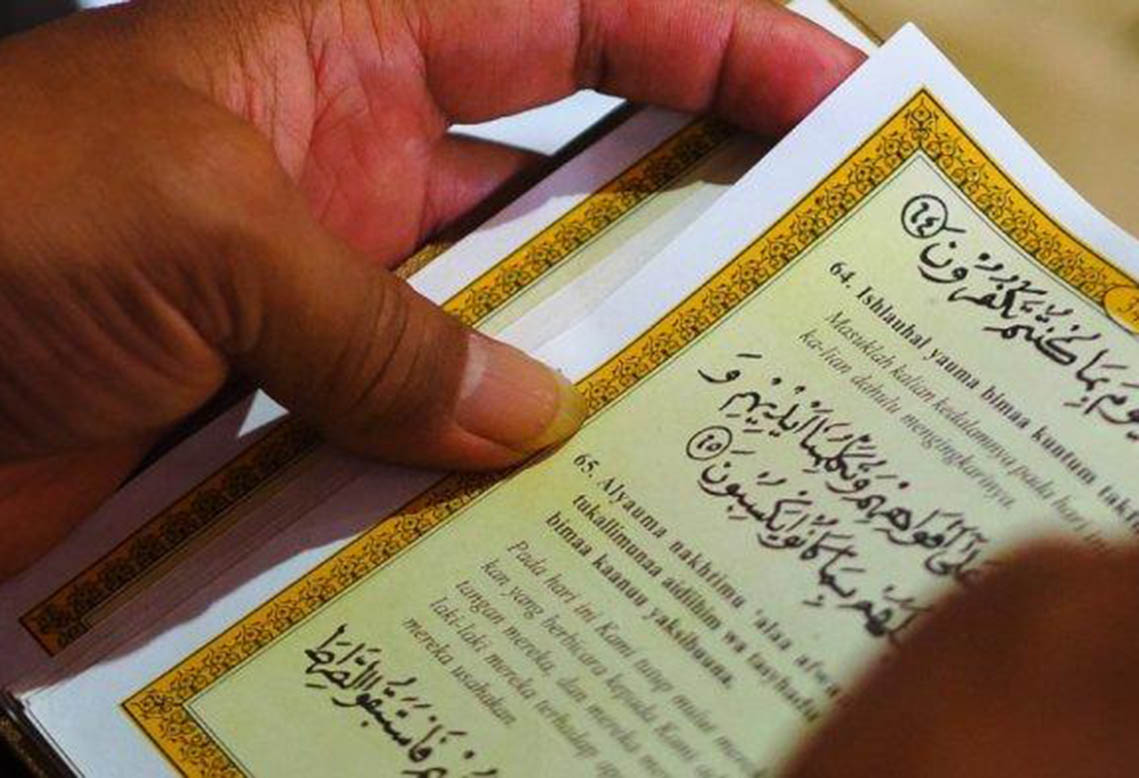 بِمَا كُنْتُمْ تَكْفُرُوْنَ ٦٤
64. Ishlauhal yauma bimaa kuntum
Masuklah kalian kedalamnya pada hari
ka-lian dahulu mengingkarinya.
عَلٰٓى اَفْوَاهِهِمْ وَتُكَلِّمُنَآ اَيْدِيْهِمْ وَ
بِمَا كَانُوْا يَكْسِبُوْنَ ٦٥
65. Alyauma nakhtimu 'alaa
tukallimunaa aidiihim wa
bimaa kaanuu yaksibuun.
Pada hari ini Kami tutup mulut
kan yang berbicara kepada Kami
tangan mereka, dan mereka
laki-laki mereka terhadap
mereka usahakan.
فَاسْتَبَقُوا الصِّرَاطَ